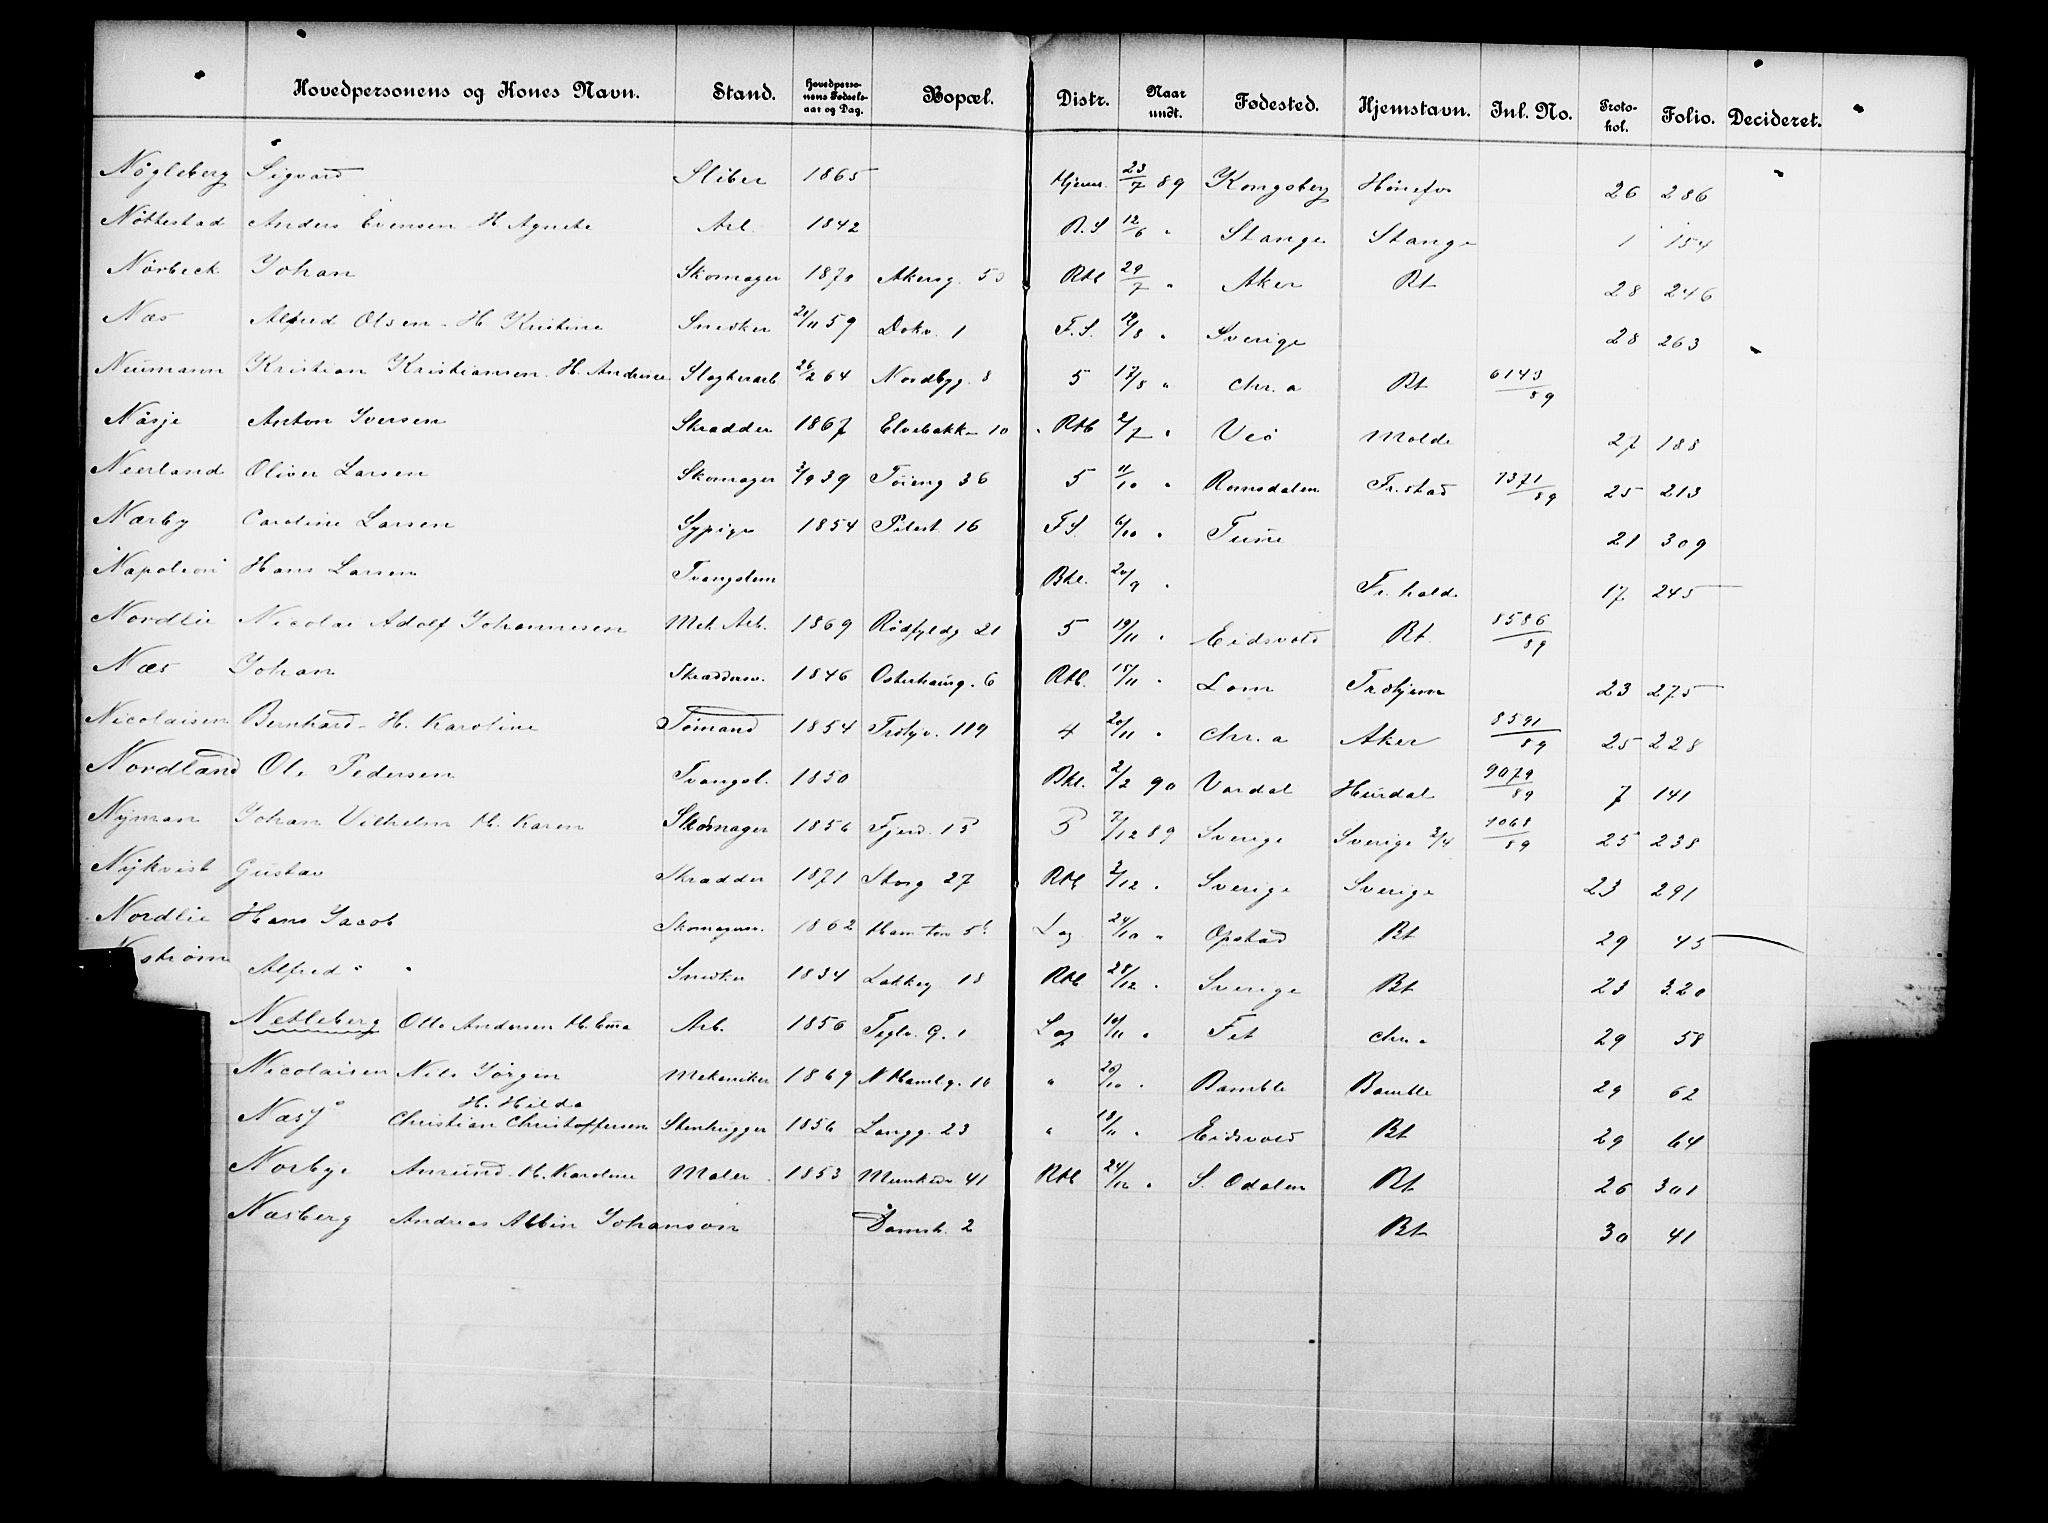 Hovedpersonens og Kones Navn. Stand. Hovedperso-nens Fødsels-aar og Dag. Bopæl. Distr. Naar undt. Fødested. Hjemstavn. Inl. No. Proto-kol. Folio. Decideret.
Nögleberg Sigvard Sliber 1865 Hjem. 23/7 89 Kongsberg Hönefos 26 286
Nöttestad Anders Evensen H. Agnete Arb. 1842 B.S 12/6 " Stange Stange 1 154
Nörbeck Johan Skomager 1870 Akersg. 50 Rtb 29/7 " Aker Bt 28 246
Næs Alfred Olsen H. Kristine Snedker 21/11 59 Dokv. 1 F.S. 12/8 " Sverige 28 263
Neumann Kristian Kristiansen H. Andrine Slagterarb 26/2 64 Nordbyg. 8 5 17/8 " Chr.a Bt 6143/89
Näsje Anton Iversen Skrædder 1867 Elvebakke 10 Rtb 2/7 " Veö Molde 27 188
Neerland Oliver Larsen Skomager 2/9 39 Töieng 36 5 11/10 " Romsdalen Fr.stad 7371/89 25 213
Nærby Caroline Larsen Sypige 1854 Pilest. 16 F.S. 6/10 " Tune 21 309
Napoleon Hans Larsen Tvangslem Bkl. 20/9 " Fr.hald 17 245
Nordlie Nicolai Adolf Johannesen Mek. Arb. 1869 Rödfyldg 21 5 19/11 " Eidsvold Bt. 8586/89
Næs Johan Skræddersv. 1846 Osterhausg. 6 Rtb. 15/11 " Lom Trdhjem 23 275
Nicolaisen Bernhard H. Karoline Tömand 1854 Trdhjv. 119 4 20/11 " Chr.a Aker 8591/89 25 228
Nordland Ole Pedersen Tvangsl. 1850 Bkl. 2/2 90 Vardal Hurdal 9079/89 7 141
Nyman Johan Vilhelm H. Karen Skomager 1856 Fjerd. 15 5 7/12 89 Sverige Sverige 3/4 9068/89 25 238
Nykvist Gustav Skrædder 1871 Storg 27 Rtb 2/12 " Sverige Sverige 23 291
Nordlie Hans Jacob Skomagersv. 1862 Ham ton 5b Log 24/10 " Opstad Bt 29 45
ström Alfred " " Snedker 1834 Lakkeg 18 Rtb 28/12 " Sverige Bt 23 320
Netleberg Otto Andersen H. Emma Arb. 1856 Teglv. G. 1 Log 10/11 " Fet Chr.a 29 58
Nicolaisen Nils Jörgen Mekaniker 1869 N. Hamlg. 10 " 20/10 " Bamble Bamble 29 62
Næss H. Hilda Christian Christoffersen Stenhugger 1856 Langg. 23 " 18/11 " Eidsvold Bt 29 64
Norbye Amund H. Karoline Maler 1853 Munkedv 41 Rtb 24/12 " S. Odalen Bt 26 301
Næsberg Andreas Albin Johanson Damst. 2 Bt 30 41